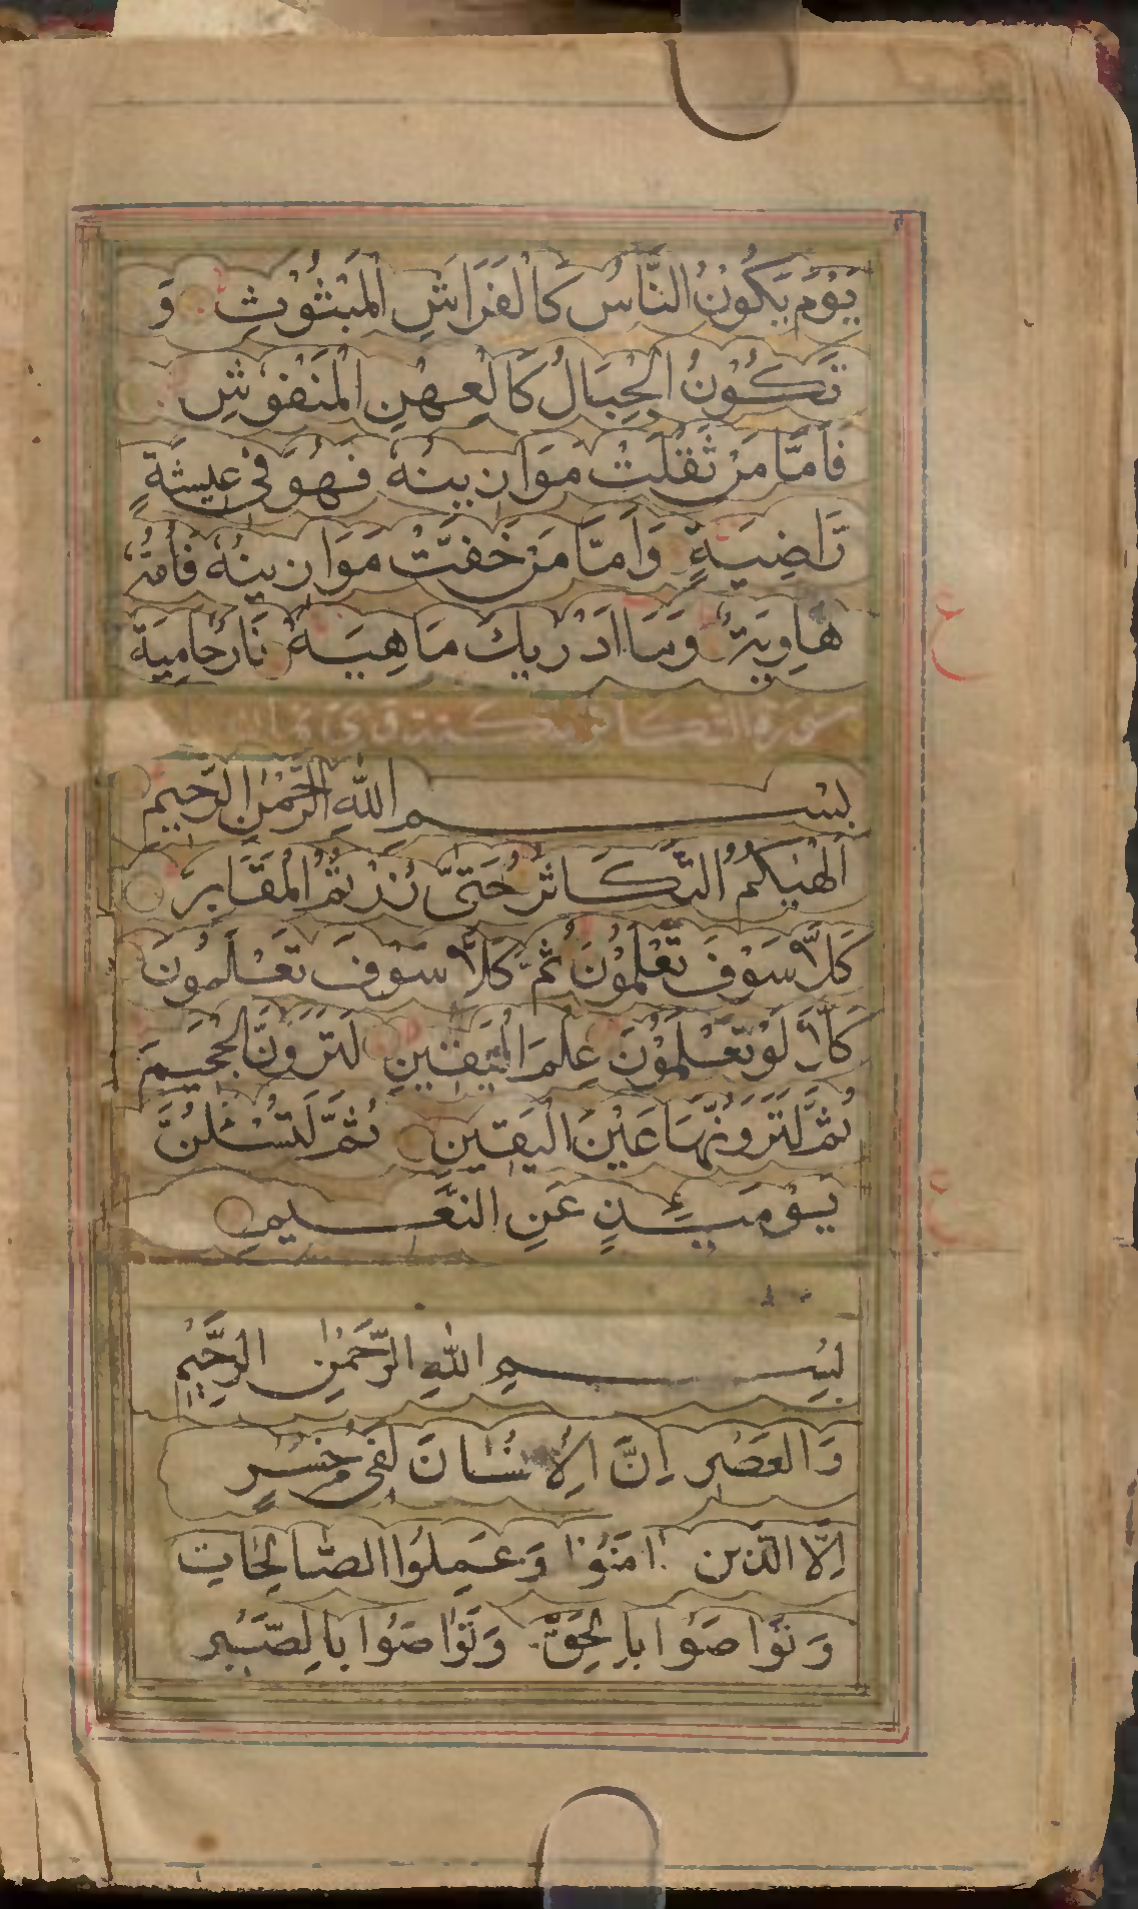 يَوْمَ يَكُوْنُ النَّاسُ كَالْفَرَاشِ الْمَبْثُوْثِ وَ
تَكُوْنُ الْجِبَالُ كَالْعِهْنِ الْمَنْفُوْشِ
فَاَمَّا مَنْ ثَقُلَتْ مَوَازِينُهٗ فَهُوَ فِىْ عِيشَةٍ
رَاضِيَةٍ وَاَمَّا مَنْ خَفَّتْ مَوَازِينُهٗ فَاُمُّهٗ
هَاوِيَةٌ وَمَا اَدْرٰيكَ مَاهِيَهْ نَارٌ حَامِيَةٌ
سورة التكاثر
بِسْمِ اللّٰهِ الرَّحْمٰنِ الرَّحِيْمِ
اَلْهٰيكُمُ التَّكَاثُرُ حَتّٰى زُرْتُمُ الْمَقَابِرَ
كَلَّا سَوْفَ تَعْلَمُوْنَ ثُمَّ كَلَّا سَوْفَ تَعْلَمُوْنَ
كَلَّا لَوْ تَعْلَمُوْنَ عِلْمَ الْيَقِيْنِ لَتَرَوُنَّ الْجَحِيْمَ
ثُمَّ لَتَرَوُنَّهَا عَيْنَ الْيَقِيْنِ ثُمَّ لَتُسْئَلُنَّ
يَوْمَئِذٍ عَنِ النَّعِيْمِ
بِسْمِ اللّٰهِ الرَّحْمٰنِ الرَّحِيْمِ
وَالْعَصْرِ اِنَّ الْاِنْسَانَ لَفِىْ خُسْرٍ
اِلَّا الَّذِيْنَ اٰمَنُوْا وَعَمِلُوا الصَّالِحَاتِ
وَتَوَاصَوْا بِالْحَقِّ وَتَوَاصَوْا بِالصَّبْرِ
ع
ع